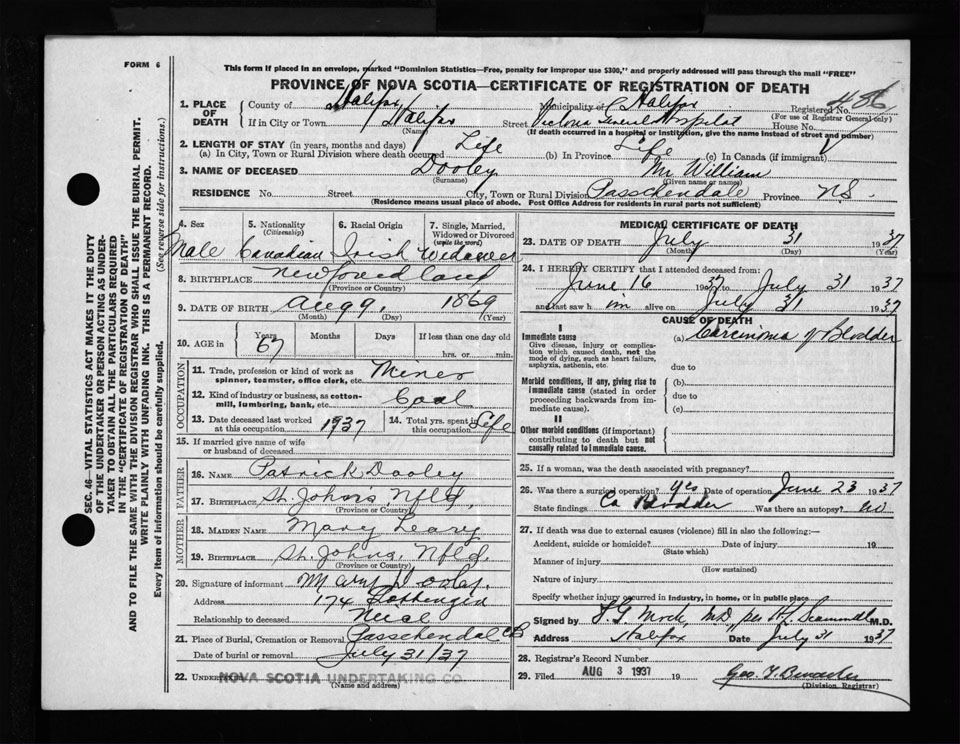 FORM 6
This form if placed in an envelope, marked "Dominion Statistics—Free, penalty for improper use $300," and properly addressed will pass through the mail "FREE"
PROVINCE OF NOVA SCOTIA—CERTIFICATE OF REGISTRATION OF DEATH
1. PLACE OF DEATH County of Halifax Municipality of Halifax Registered No. 486
(For use of Registrar General only)
If in City or Town Halifax Street Victoria General Hospital House No.
(Name) (If death occurred in a hospital or institution, give the name instead of street and number)
2. LENGTH OF STAY (in years, months and days)
(a) In City, Town or Rural Division where death occurred Life (b) In Province Life (c) In Canada (if immigrant)
3. NAME OF DECEASED Dooley Mr William
(Surname) (Given name or names)
RESIDENCE No. Street City, Town or Rural Division Passchendale Province N.S.
(Residence means usual place of abode. Post Office Address for residents in rural parts not sufficient)
SEC. 46—VITAL STATISTICS ACT MAKES IT THE DUTY
OF THE UNDERTAKER OR PERSON ACTING AS UNDER-
TAKER TO OBTAIN ALL THE PARTICULARS REQUIRED
IN THE "CERTIFICATE OF REGISTRATION OF DEATH"
AND TO FILE THE SAME WITH THE DIVISION REGISTRAR WHO SHALL ISSUE THE BURIAL PERMIT.
WRITE PLAINLY WITH UNFADING INK. THIS IS A PERMANENT RECORD.
Every item of information should be carefully supplied. (See reverse side for instructions.)
4. Sex 5. Nationality 6. Racial Origin 7. Single, Married,
(Citizenship) Widowed or Divorced
(write the word)
Male Canadian Irish Widower
8. BIRTHPLACE Newfoundland
(Province or Country)
9. DATE OF BIRTH Aug 9, 1869
(Month) (Day) (Year)
10. AGE in Years Months Days If less than one day old
67 hrs. or min.
OCCUPATION
11. Trade, profession or kind of work as Miner
spinner, teamster, office clerk, etc.
12. Kind of industry or business, as cotton- Coal
mill, lumbering, bank, etc.
13. Date deceased last worked 1937 14. Total yrs. spent in Life
at this occupation this occupation
15. If married give name of wife
or husband of deceased
FATHER
16. NAME Patrick Dooley
17. BIRTHPLACE St. John's Nfld,
(Province or Country)
MOTHER
18. MAIDEN NAME Mary Leary
19. BIRTHPLACE St. Johns, Nfld.
(Province or Country)
20. Signature of informant Dooley.
Address 174
Relationship to deceased
21. Place of Burial, Cremation or Removal Passchendale CB
Date of burial or removal July 31/37
22. UNDERTAKER NOVA SCOTIA UNDERTAKING CO.
(Name and address)
MEDICAL CERTIFICATE OF DEATH
23. DATE OF DEATH July 31 1937
(Month) (Day) (Year)
24. I HEREBY CERTIFY that I attended deceased from:
June 16 1937 to July 31 1937
and last saw him alive on July 31 1937
CAUSE OF DEATH
I
Immediate cause (a) Carcinoma of Bladder
Give disease, injury or complica-
tion which caused death, not the
mode of dying, such as heart failure,
asphyxia, asthenia, etc. due to
Morbid conditions, if any, giving rise to (b)
immediate cause (stated in order
proceeding backwards from im- due to
mediate cause). (c)
II
Other morbid conditions (if important)
contributing to death but not
causally related to immediate cause.
25. If a woman, was the death associated with pregnancy?
26. Was there a surgical operation? yes Date of operation June 23 1937
State findings Ca Bladder Was there an autopsy? no
27. If death was due to external causes (violence) fill in also the following:
Accident, suicide or homicide? Date of injury 19
(State which)
Manner of injury
(How sustained)
Nature of injury
Specify whether injury occurred in industry, in home, or in public place
Signed by Mack, M.D., per M.D.
Address Halifax Date July 31 1937
28. Registrar's Record Number
29. Filed AUG 3 1937 19 Geo. T.
(Division Registrar)